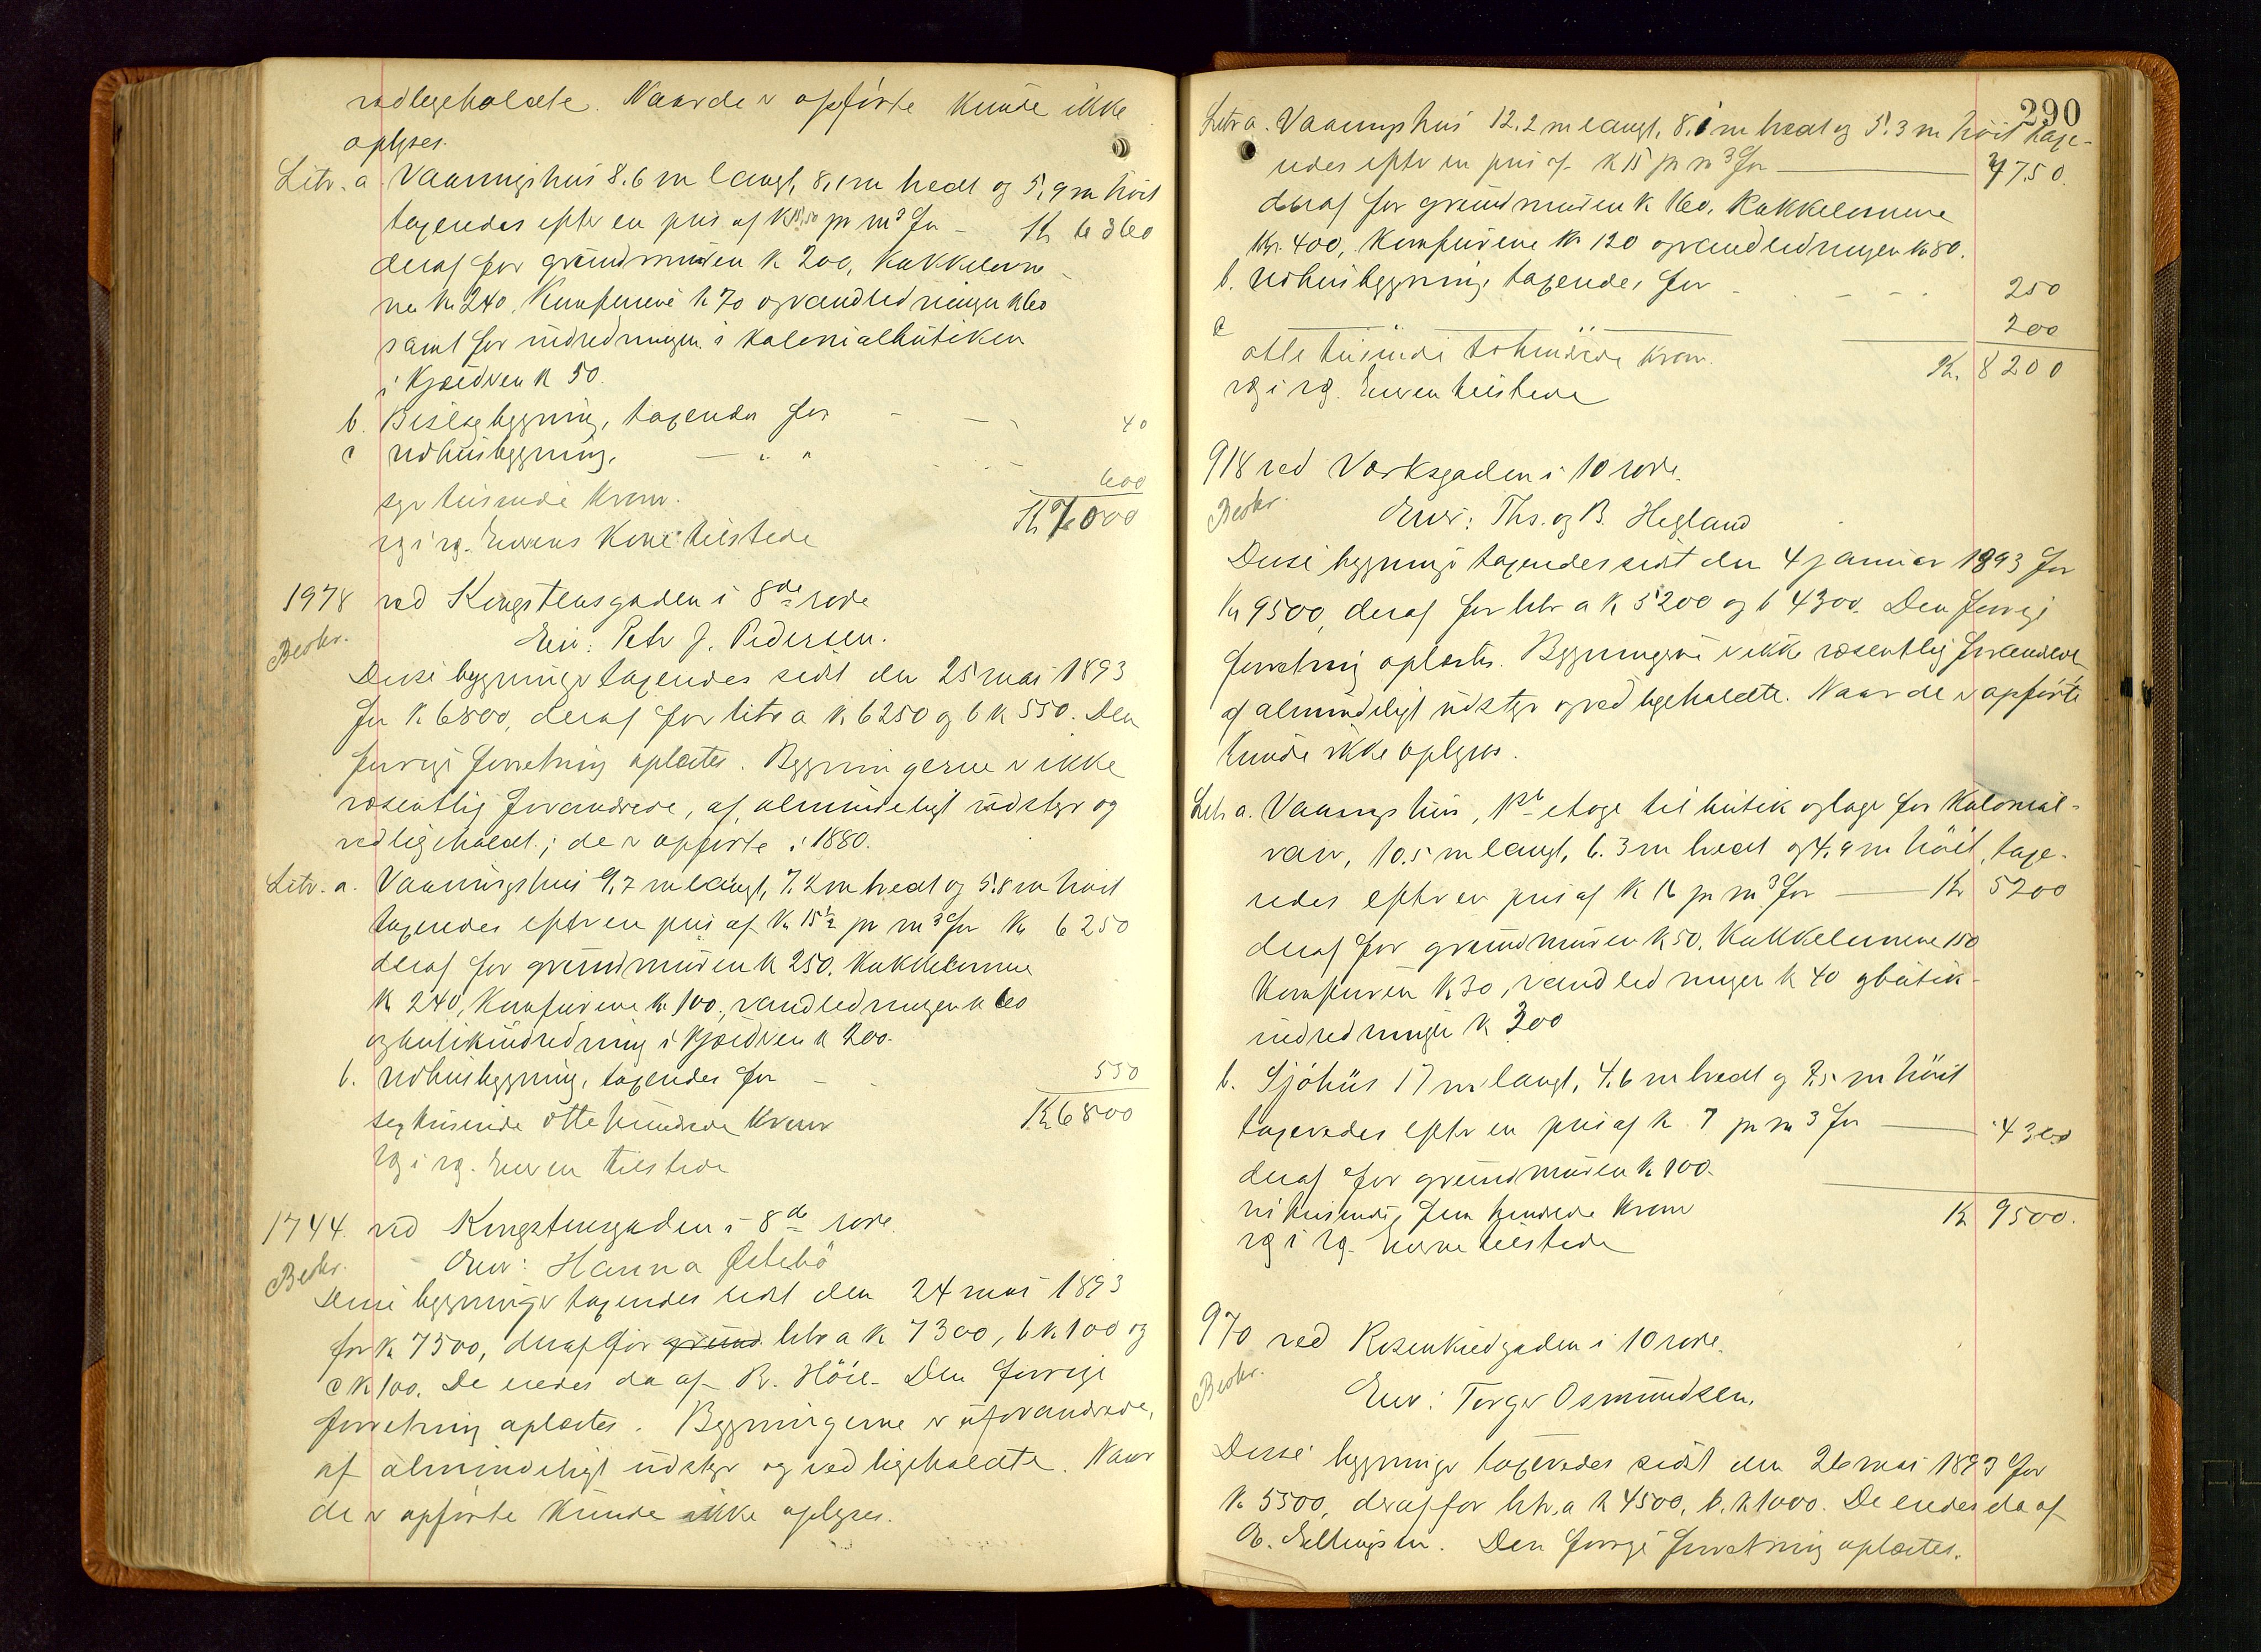 vedligeholdte. Naar de er opførte kunde ikke
oplyses.
Litr. a Vaaningshus 8.6 m langt, 8.1 m bredt og 5,9 m høit
taxeredes efter en pris af K 15,50 pr m³ for - Kr 6360
deraf for grundmuren K 200, kakkelovne-
ne Kr 240, Komfurene K 70 og vandledningen K 60
samt for indredningen i kolonialbutiken
i Kjælderen K 50.
b. Bislagbygning, taxeredes for - - - 40
c Udhusbygning, — " " - - - 600
syv tusinde Kroner. Kr 7000
og i og. Eierens Kone tilstede
1978 ved Kongstensgaden i 8de rode
Beskr. Eier: Petr J. Pedersen.
Disse bygninger taxeredes sidst den 25 mai 1893
for K 6800, deraf for litr a K 6250 og b K 550. Den
forrige forretning oplæstes. Bygningerne er ikke
væsentlig forandrede, af almindeligt udstyr og
vedligeholdt; de er opførte i 1880.
Litr. a. Vaaningshus 9,7 m langt, 7.2 m bredt og 5.8 m høit
taxeredes efter en pris af K 15½ pr m³ for Kr 6250
deraf for grundmuren K 250, kakkelovnene
K 240, Komfurene Kr 100, vandledningen K 60
og butikindredning i Kjælderen K 200.
b. Udhusbygning, taxeredes for - - 550
sex tusinde otte hundrede Kroner Kr 6800
og i og. Eieren tilstede
1744 ved Kongstensgaden i 8de rode.
Beskr. Eier: Hanna Østebö
Disse bygninger taxeredes sidst den 24 mai 1893
for K 7500, deraf for grund litr a K 7300, b K 100 og
c K 100. De eiedes da af R. Höie. Den forrige
forretning oplæstes. Bygningerne er uforandrede,
af almindeligt udstyr og vedligeholdte. Naar
de er opførte kunde ikke oplyses.
290
Litr a. Vaaningshus 12.2 m langt, 8.1 m bredt og 5.3 m høit taxe-
redes efter en pris af K 15 pr m³ for — 7750.
deraf for grundmuren K 160, Kakkelovnene
Kr. 400, Komfurene Kr 120 og vandledningen K 80.
b. Udhusbygning taxeredes for - - - - 250
c — — — 200
otte tusinde tohundrede Kroner. Kr. 8200
og i og. Eieren tilstede
918 ved Værksgaden i 10 rode.
Beskr. Eiere: Ths. og B. Hegland
Disse bygninger taxeredes sidst den 4 januar 1893 for
Kr 9500, deraf for litr a K 5200 og b 4300. Den forrige
forretning oplæstes. Bygningerne er ikke væsentlig forandrede
af almindeligt udstyr og vedligeholdte. Naar de er opførte
kunde ikke oplyses.
Litr a. Vaaningshus, 1ste etage til butik og lager for Kolonial-
varer, 10.5 m langt, 6.3 m bredt og 4.9 m høit, taxe-
redes efter en pris af K 16 pr m³ for — Kr 5200
deraf for grundmuren K 50, Kakkelovnene 150
Komfuren K 30, vandledningen K 40 og butik-
indredningen K 300
b. Sjøhus 17 m langt, 4.6 m bredt og 7.5 m høit
taxeredes efter en pris af K 7 pr m³ for — 4300
deraf for grundmuren K 100.
ni tusinde, fem hundrede Kroner Kr 9500.
og i og. Eierne tilstede
970 ved Rosenkildgaden i 10 rode.
Beskr. Eier: Torger Osmundsen.
Disse bygninger taxeredes sidst den 26 mai 1893 for
K 5500, deraf for litr. a K 4500, b. K 1000. De eiedes da af
E. Ellingsen. Den forrige forretning oplæstes.